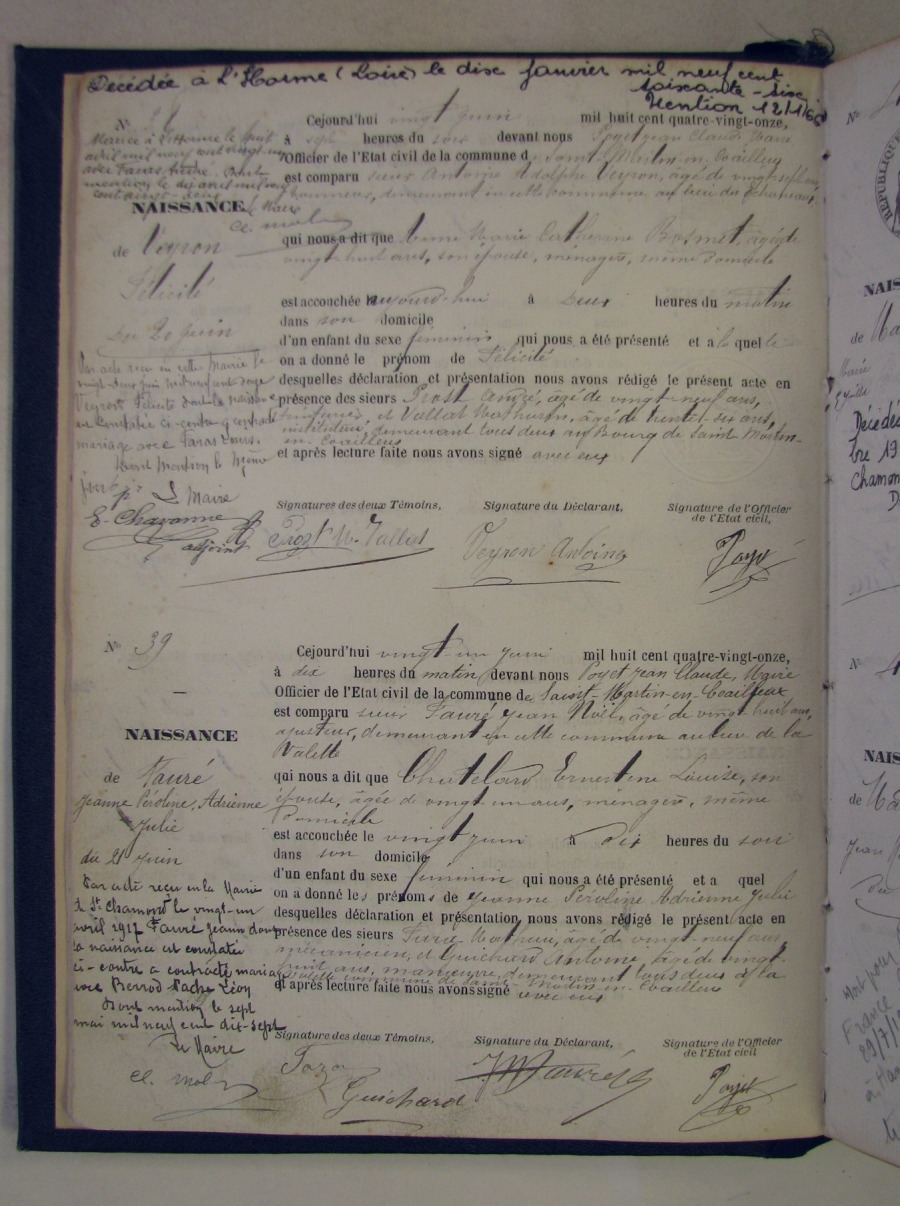 Décédée à L'Horme (Loire) le dix janvier mil neuf cent
soixante-six
Mention 12/1/66
N°
Cejourd'hui vingt juin mil huit cent quatre-vingt-onze,
à sept heures du soir devant nous Poyet Jean Claude, Maire
Officier de l'Etat civil de la commune de Saint-Martin-en-Coailleux
est comparu sieur Antoine Adolphe Veyron, âgé de vingt-sept ans
demeurant en cette commune, au lieu du
Mariée à L'Horme le huit
avril mil neuf cent vingt-un
avec Faure
mention le dix avril mil neuf
cent vingt-un
Le Maire
Cl. Mol
NAISSANCE
de Veyron
Félicité
du 20 juin
qui nous a dit que Anne Marie Catherine Bosmet, âgée de
vingt-huit ans, son épouse, ménagère, même domicile
est accouchée aujourd'hui à deux heures du matin
dans son domicile
d'un enfant du sexe féminin qui nous a été présenté et à laquelle
on a donné le prénom de Félicité
desquelles déclaration et présentation nous avons rédigé le présent acte en
présence des sieurs Prost André, âgé de vingt-neuf ans,
et Vallat Mathurin, âgé de trente-six ans,
instituteur, demeurant tous deux au Bourg de Saint Martin-
en-Coailleux
et après lecture faite nous avons signé avec eux
Par acte reçu en cette Mairie le
vingt-deux juin mil neuf cent douze
Veyron Félicité dont la naissance
est constatée ci-contre a contracté
mariage avec Faras Louis.
Dont Mention le même
jour
Le Maire
E. Chavanne
adjoint
Signatures des deux Témoins,
Signature du Déclarant,
Signature de l'Officier
de l'Etat civil,
Prost M. Vallat
Veyron Antoine
Poyet
N° 39
Cejourd'hui vingt-un juin mil huit cent quatre-vingt-onze,
à dix heures du matin devant nous Poyet Jean Claude, Maire
Officier de l'Etat civil de la commune de Saint-Martin-en-Coailleux
est comparu sieur Fauré Jean Noël, âgé de vingt-huit ans,
ajusteur, demeurant en cette commune au lieu de la
Valette
NAISSANCE
de Fauré
Jeanne Péroline, Adrienne
Julie
du 20 juin
qui nous a dit que Chatelard Ernestine Louise, son
épouse, âgée de vingt-un ans, ménagère, même
domicile
est accouchée le vingt juin à dix heures du soir
dans son domicile
d'un enfant du sexe féminin qui nous a été présenté et a quel
on a donné les prénoms de Jeanne Péroline Adrienne Julie
desquelles déclaration et présentation nous avons rédigé le présent acte en
présence des sieurs Mathieu, âgé de vingt-neuf ans
mécanicien, et Guichard Antoine, âgé de vingt-
huit ans, manœuvre, demeurant tous deux à la
Valette commune de Saint-Martin-en-Coailleux
et après lecture faite nous avons signé avec eux
Par acte reçu en la Mairie
de St Chamond le vingt-un
avril 1917 Fauré Jeanne dont
la naissance est constatée
ci-contre a contracté mariage
avec Berrod Léon
Dont mention le sept
mai mil neuf cent dix-sept
Le Maire
Cl. Mol
Signature des deux Témoins,
Signature du Déclarant,
Signature de l'Officier
de l'Etat civil
Guichard
Fauré
Poyet
N°
RÉPUBLIQUE
NAIS
de
Décédé
bre 19
Chamon
N°
NAIS
de
Jean
Mort pour
France
29/7/19